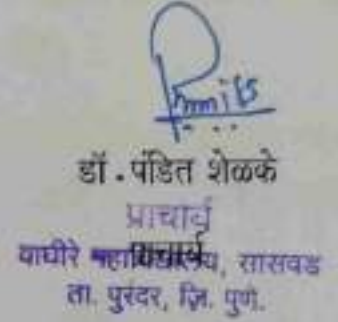 डॉ. पंडित शेळके
प्राचार्य
वाघीरे महाविद्यालय, सासवड
ता. पुरंदर, जि. पुणे.